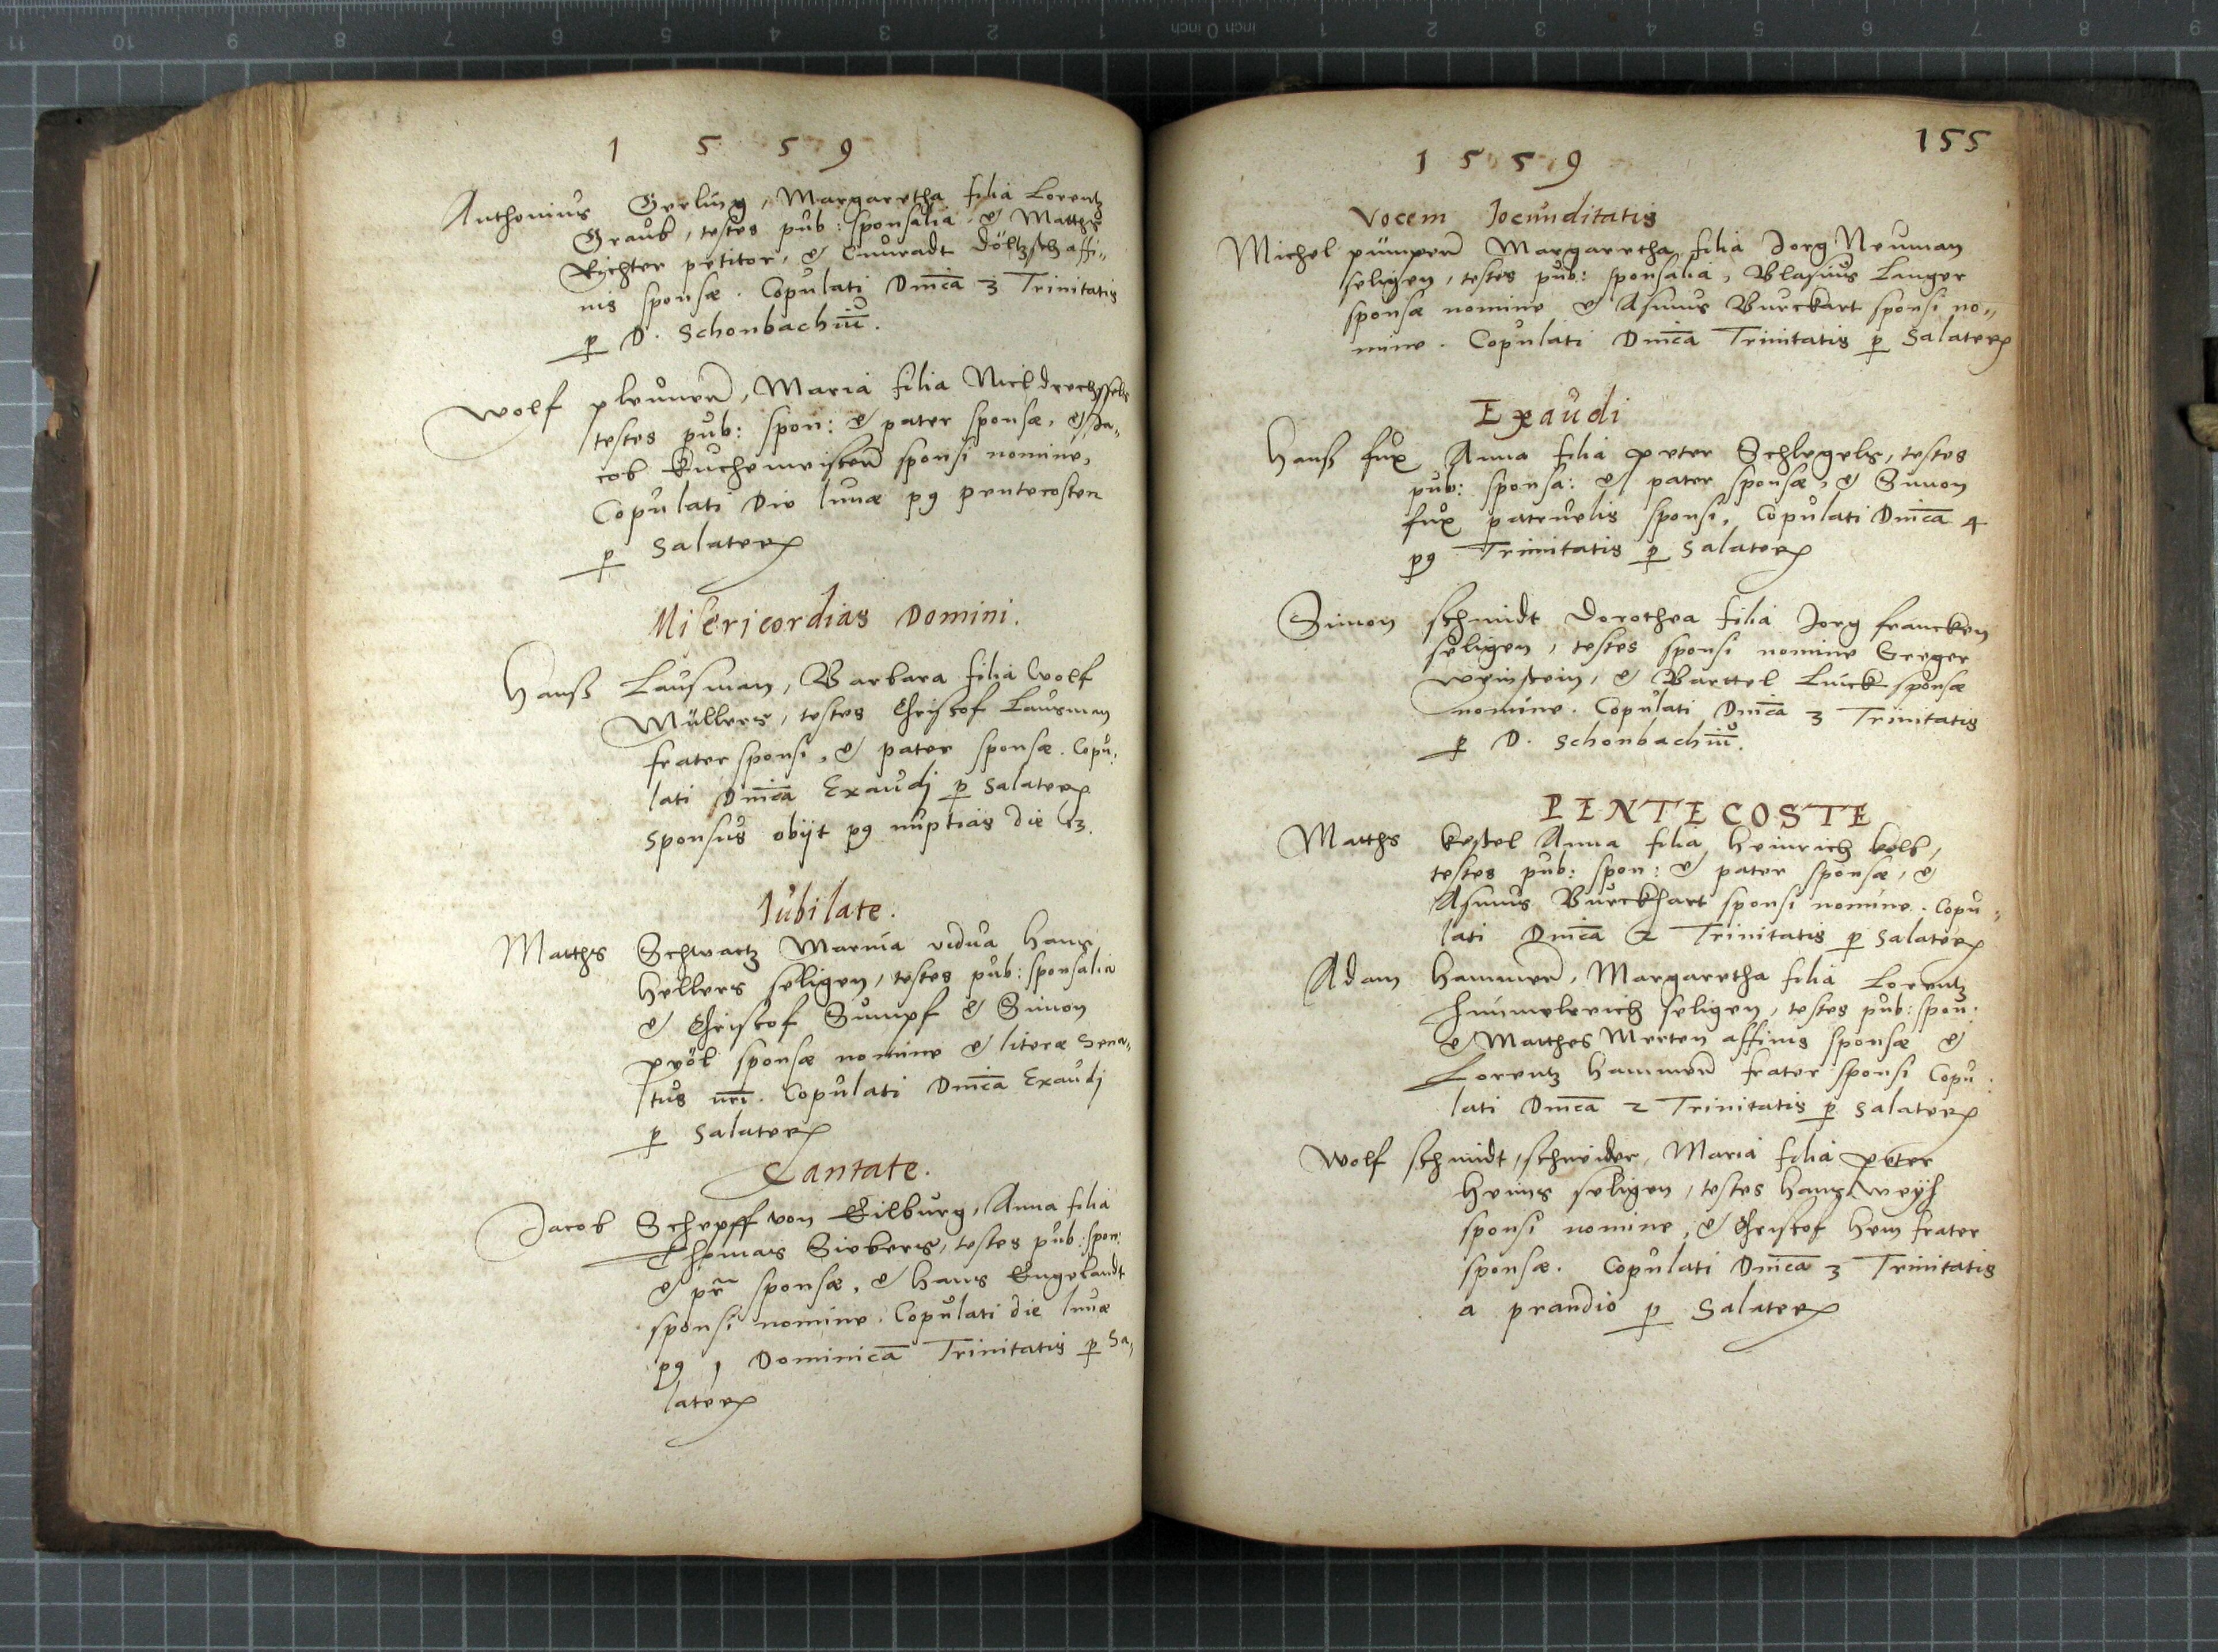 1 5 5 9
Anthonius Gerling, Margaretha filia Lorentz
Graub, testes pub: sponsalia & Matths
Richter petitor, & Cunradt affi„
nis sponsæ. Copulati Dnica 3 Trinitatis
p D. Schonbachiu.
Wolf pleuner, Maria filia Nicl drechssels
testes pub: spon: & pater sponsæ, & Ja„
cob Kuchemeister sponsi nomine,
Copulati Die lunæ p9 pentecosten
p Salaterx
Misericordias Domini.
Hanß Lausman, Barbara filia Wolf
Müllers, testes Christof Lausman
frater sponsi, & pater sponsæ. Copu„
lati Dnica Exaudj p Salaterx
sponsus obijt p9 nuptias die 13.
Iubilate.
Matths Schwartz Marina vidua Hans
Hellers seligen, testes pub: sponsalia
& Christof Sumpf & Simon
pröl sponsæ nomine & literæ Sena„
tus nri. Copulati Dnica Exaudj
p Salaterx
Cantate.
Jacob Schepff von Eilburg, Anna filia
Thomas Siebers, testes pub: spon:
& pr sponsæ, & Hans Engelandt
sponsi nomine. Copulati die lunæ
p9 1 Dominica Trinitatis p Sa„
laterx
155
1 5 5 9
Vocem Iocunditatis
Michel pümper Margaretha filia Jorg Neuman
seligen, testes pub: sponsalia, Blasius Langer
sponsæ nomine & Asmus Burckart sponsi no„
mine. Copulati Dnica Trinitatis p Salaterx
Exaudi
Hanß fux Anna filia peter Schlegels, testes
pub: sponsa: & pater sponsæ, & Simon
fux patruelis sponsi, Copulati Dnica 4
p9 Trinitatis p Salaterx
Simon schmidt Dorothea filia Jorg francken
seligen, testes sponsi nomine Greger
weinstein, & Barttel Luck sponsæ
nomine. Copulati Dnica 3 Trinitatis
p D. Schonbachiu.
PENTECOSTE
Matths Keßel Anna filia Heinrich kolb,
testes pub: spon: & pater sponsæ, &
Asmus Burckhart sponsi nomine. Copu„
lati Dnica 2 Trinitatis p Salaterx
Adam Hammer, Margaretha filia Lorentz
Himelreich seligen, testes pub: spon:
& Matthes Merten affinis sponsæ &
Lorentz Hammer frater sponsi Copu„
lati Dnica 2 Trinitatis p Salaterx
Wolf schmidt, schneider, Maria filia peter
Heins seligen, testes Hans weyß
sponsi nomine, & Christof Hein frater
sponsæ. Copulati Dnica 3 Trinitatis
a prandio p Salaterx